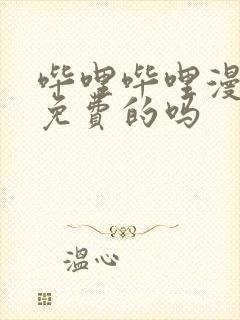 哔哩哔哩漫
免费的吗
温心